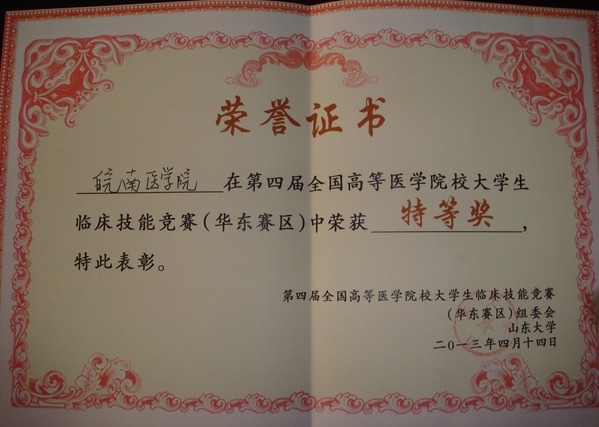 荣誉证书
皖南医学院在第四届全国高等医学院校大学生
临床技能竞赛(华东赛区)中荣获特等奖,
特此表彰。
第四届全国高等医学院校大学生临床技能竞赛
(华东赛区)组委会
山东大学
二〇一三年四月十四日